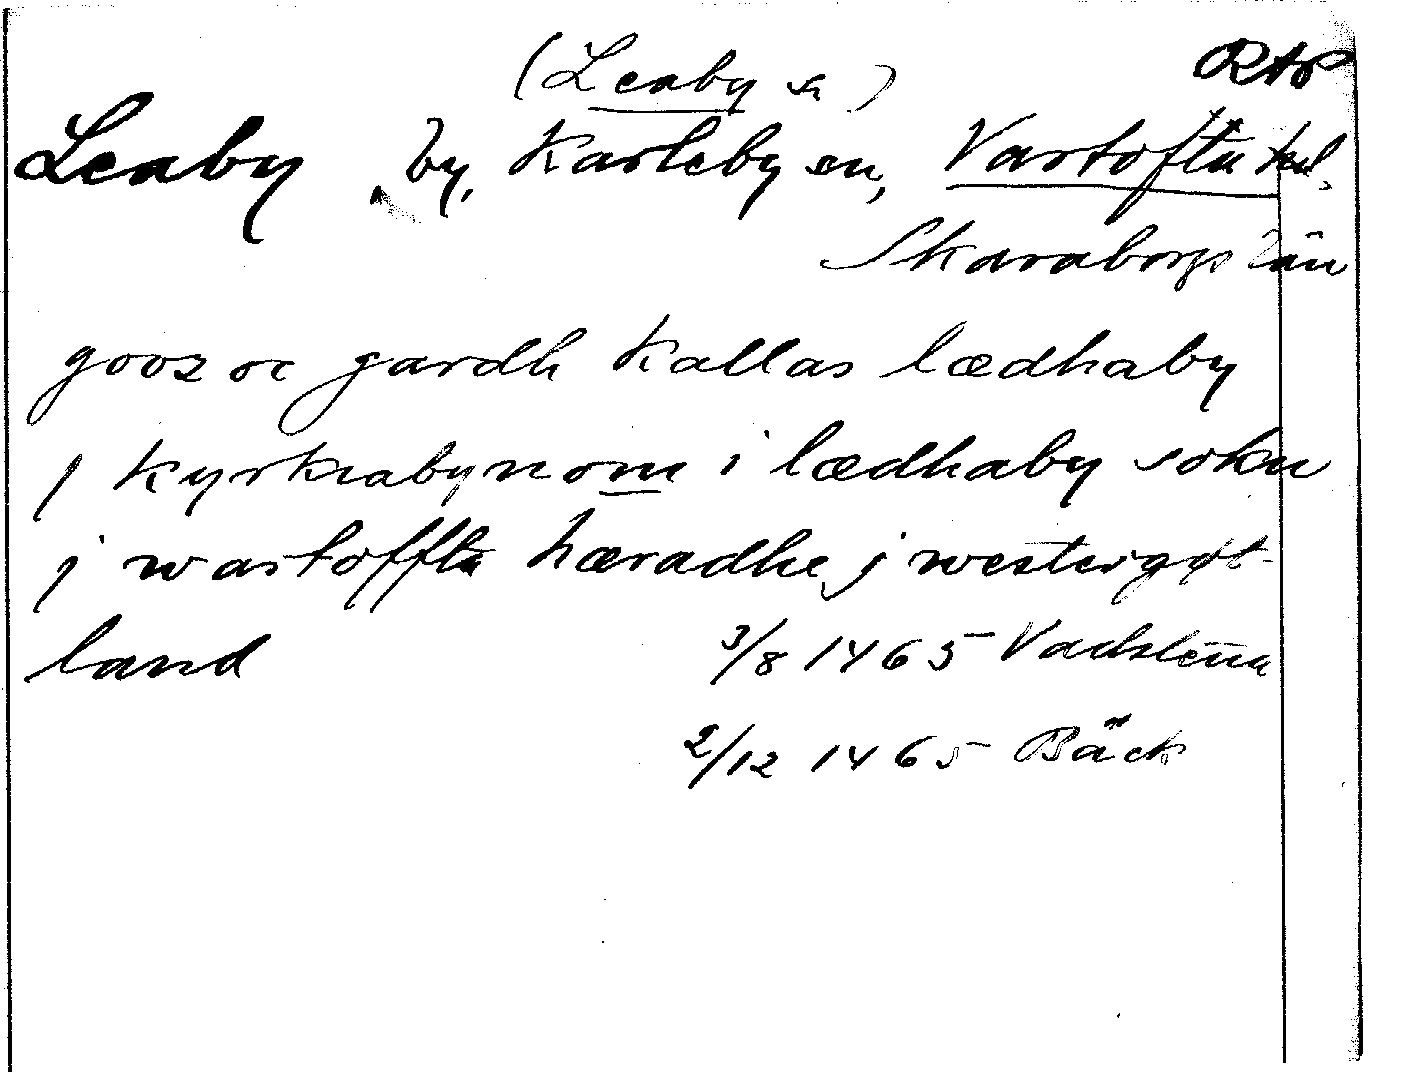 (Leaby sn) RAP
Leaby by, Karleby sn, Vartofta hd,
Skaraborgs län
gooz oc gardh kallas lædhaby
j kyrkrabynom i lædhaby sokn
j wartoffta hæradhe j westergøt-
land 3/8 1465 Vadstena
2/12 1465 Bäck